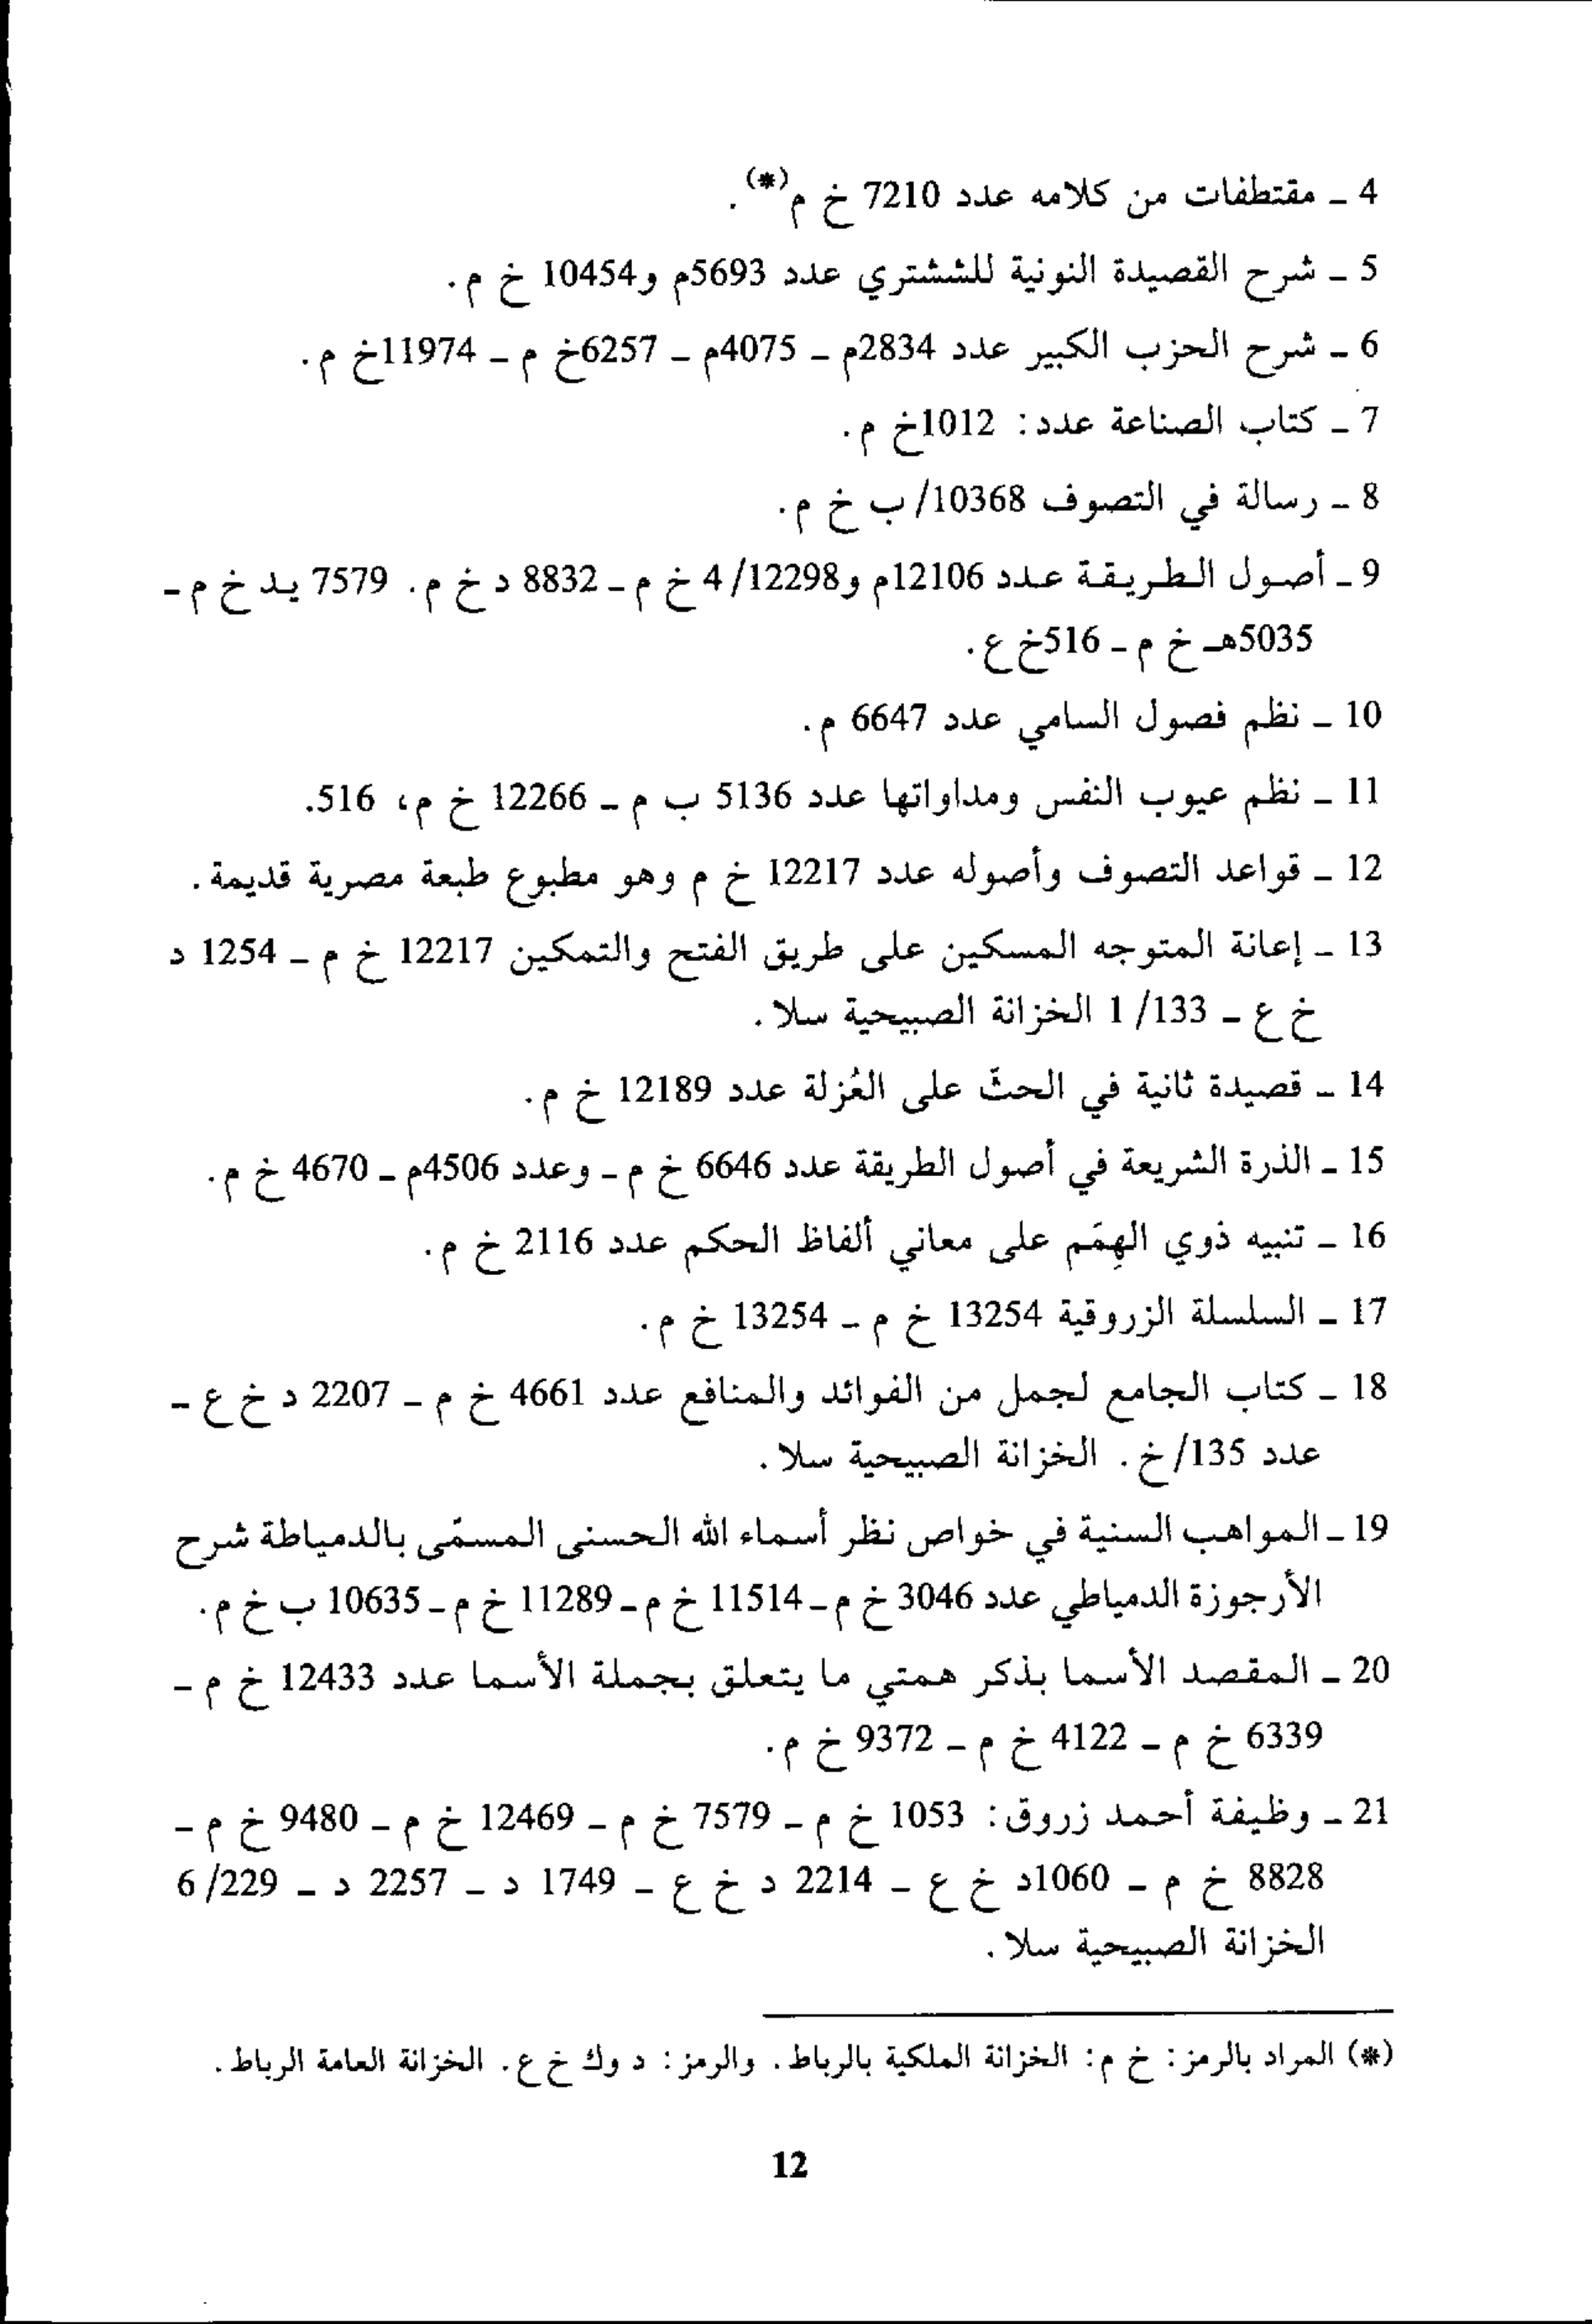 4 ـ مقتطفات من كلامه عدد 7210 خ م(*).
5 ـ شرح القصيدة النونية للششتري عدد 5693م و10454 خ م.
6 ـ شرح الحزب الكبير عدد 2834م ـ 4075م ـ 6257خ م ـ 11974خ م.
7 ـ كتاب الصناعة عدد: 1012خ م.
8 ـ رسالة في التصوف 10368/ ب خ م.
9 ـ أصول الطريقة عدد 12106م و12298/ 4 خ م ـ 8832 د خ م. 7579 يد خ م ـ
5035هـ خ م ـ 516خ ع.
10 ـ نظم فصول السامي عدد 6647 م.
11 ـ نظم عيوب النفس ومداواتها عدد 5136 ب م ـ 12266 خ م، 516.
12 ـ قواعد التصوف وأصوله عدد 12217 خ م وهو مطبوع طبعة مصرية قديمة.
13 ـ إعانة المتوجه المسكين على طريق الفتح والتمكين 12217 خ م ـ 1254 د
خ ع ـ 133/ 1 الخزانة الصبيحية سلا.
14 ـ قصيدة ثانية في الحثّ على العُزلة عدد 12189 خ م.
15 ـ الذرة الشريعة في أصول الطريقة عدد 6646 خ م ـ وعدد 4506م ـ 4670 خ م.
16 ـ تنبيه ذوي الهِمَم على معاني ألفاظ الحكم عدد 2116 خ م.
17 ـ السلسلة الزروقية 13254 خ م ـ 13254 خ م.
18 ـ كتاب الجامع لجمل من الفوائد والمنافع عدد 4661 خ م ـ 2207 د خ ع ـ
عدد 135/خ. الخزانة الصبيحية سلا.
19 ـ المواهب السنية في خواص نظر أسماء الله الحسنى المسمّى بالدمياطة شرح
الأرجوزة الدمياطي عدد 3046 خ م ـ 11514 خ م ـ 11289 خ م ـ 10635 ب خ م.
20 ـ المقصد الأسما بذكر همتي ما يتعلق بجملة الأسما عدد 12433 خ م ـ
6339 خ م ـ 4122 خ م ـ 9372 خ م.
21 ـ وظيفة أحمد زروق: 1053 خ م ـ 7579 خ م ـ 12469 خ م ـ 9480 خ م ـ
8828 خ م ـ 1060د خ ع ـ 2214 د خ ع ـ 1749 د ـ 2257 د ـ 229/ 6
الخزانة الصبيحية سلا.
(*) المراد بالرمز: خ م: الخزانة الملكية بالرباط. والرمز: د وك خ ع. الخزانة العامة الرباط.
12